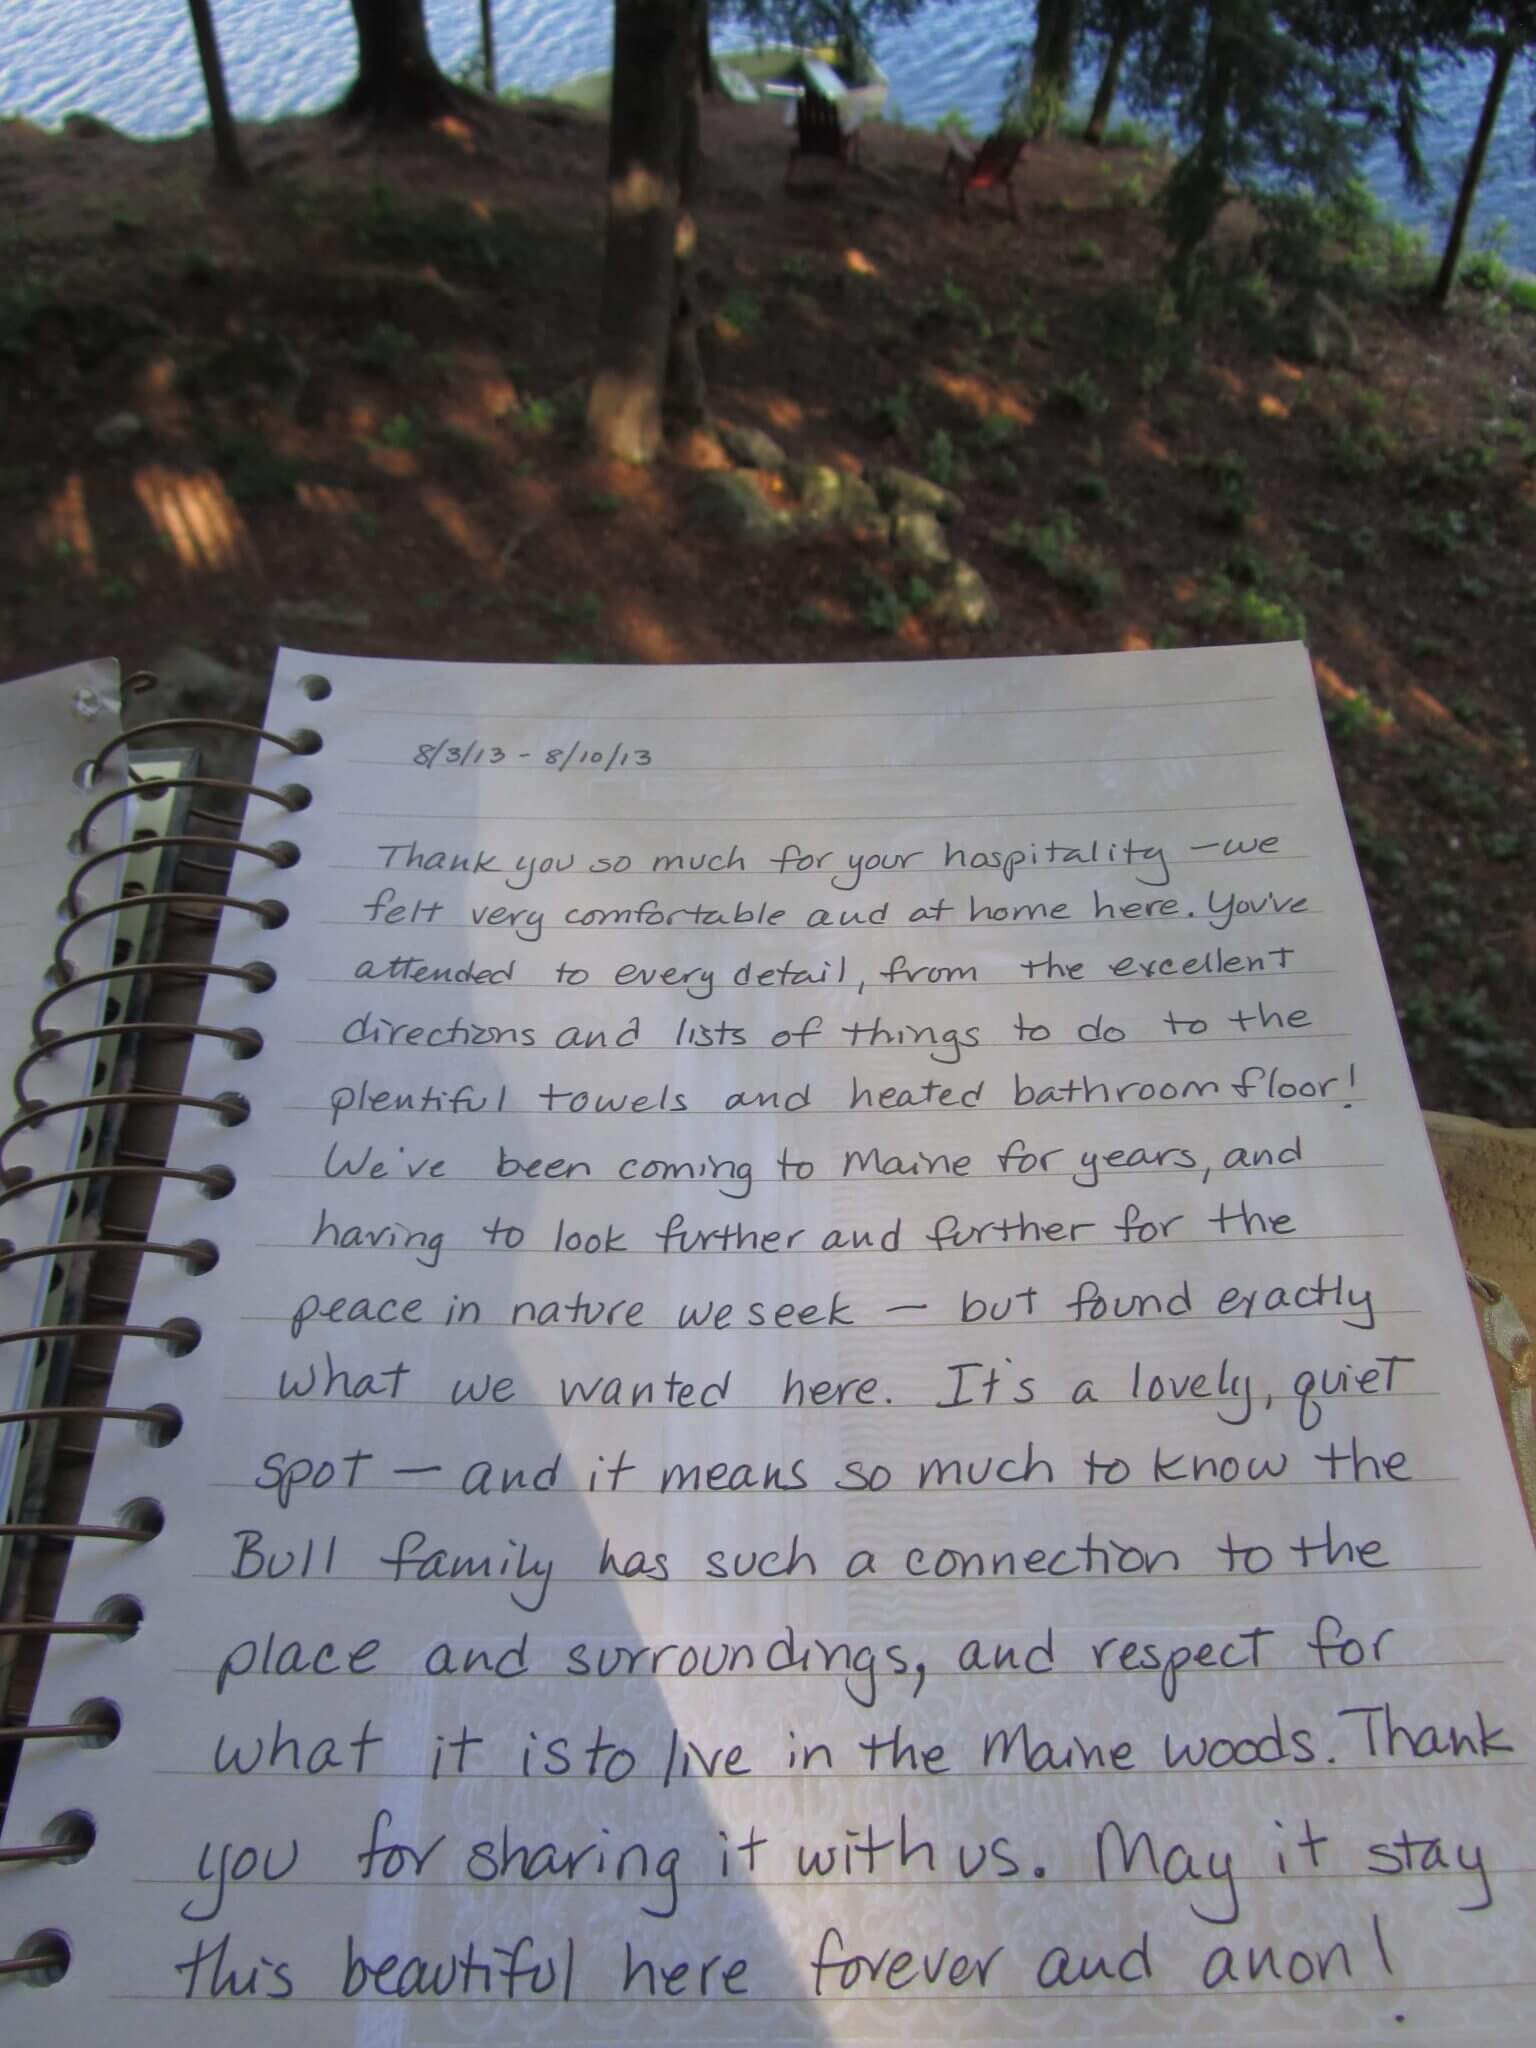 8/3/13 - 8/10/13
Thank you so much for your hospitality - we
felt very comfortable and at home here. You've
attended to every detail, from the excellent
directions and lists of things to do to the
plentiful towels and heated bathroom floor!
We've been coming to Maine for years, and
having to look further and further for the
peace in nature we seek — but found exactly
what we wanted here. It's a lovely, quiet
spot — and it means so much to know the
Bull family has such a connection to the
place and surroundings, and respect for
what it is to live in the Maine woods. Thank
you for sharing it with us. May it stay
this beautiful here forever and anon!